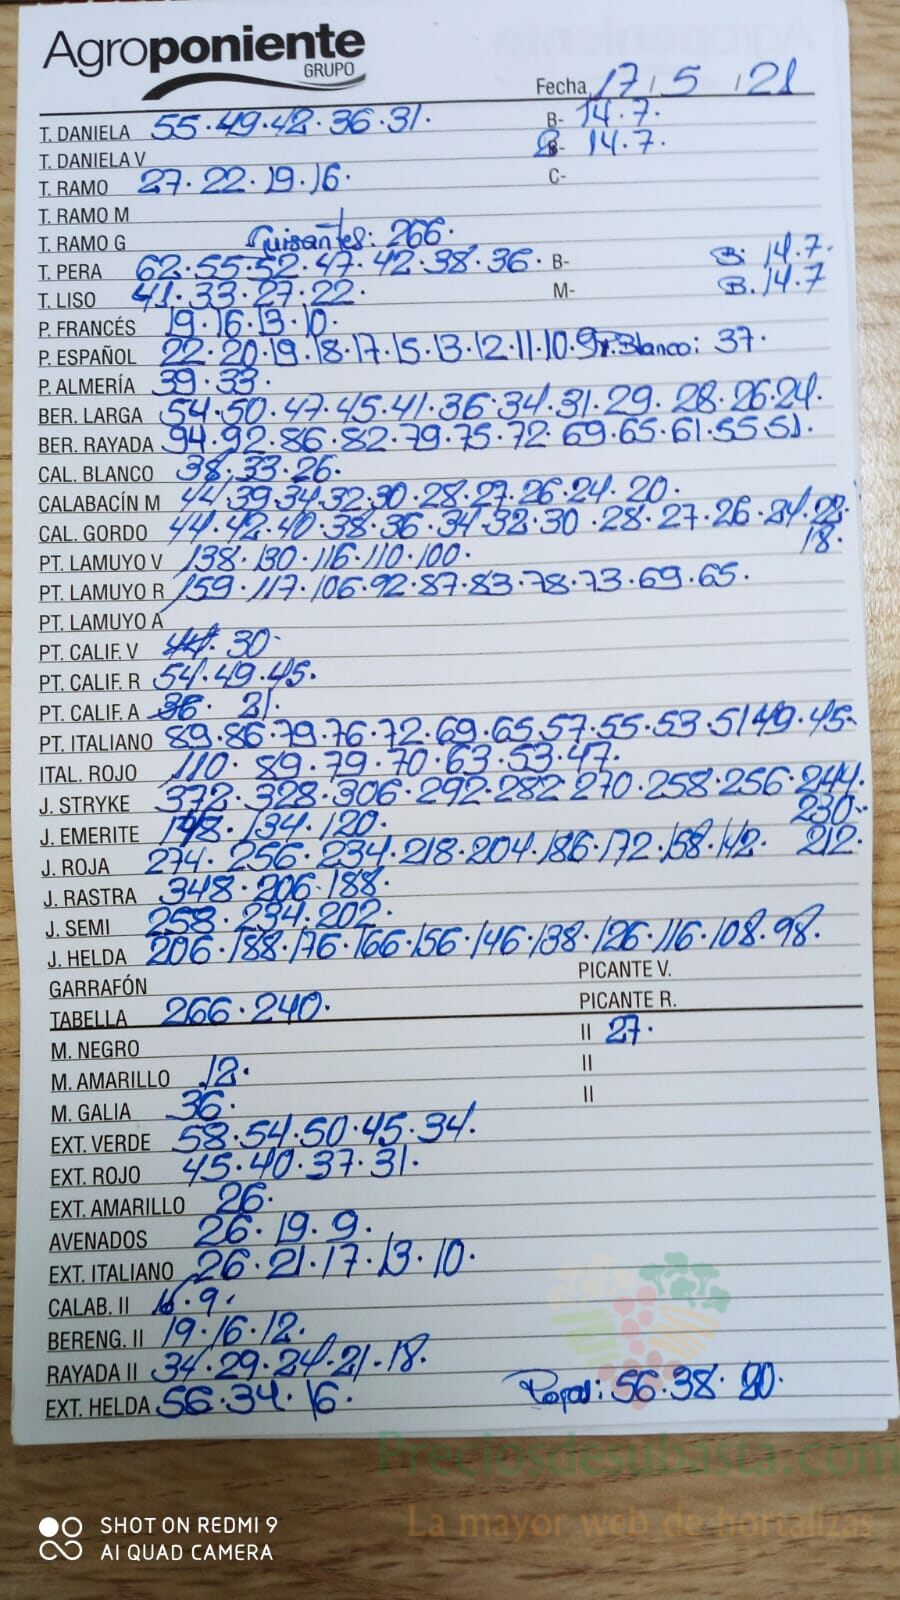 Agroponiente
GRUPO
Fecha 17 / 5 / 21
T. DANIELA 55·49·42·36·31· B- 14·7·
T. DANIELA V B- 14·7·
T. RAMO 27·22·19·16· C-
T. RAMO M
T. RAMO G Guisantes: 266·
T. PERA 62·55·52·47·42·38·36· B- B: 14·7·
T. LISO 41·33·27·22· M- B. 14·7
P. FRANCÉS 19·16·13·10·
P. ESPAÑOL 22·20·19·18·17·15·13·12·11·10·9· P. Blanco: 37·
P. ALMERÍA 39·33·
BER. LARGA 54·50·47·45·41·36·34·31·29·28·26·24·
BER. RAYADA 94·92·86·82·79·75·72·69·65·61·55·51·
CAL. BLANCO 38·33·26·
CALABACÍN M 44·39·34·32·30·28·27·26·24·20·
CAL. GORDO 44·42·40·38·36·34·32·30·28·27·26·24·22·
18·
PT. LAMUYO V 138·130·116·110·100·
PT. LAMUYO R 159·117·106·92·87·83·78·73·69·65·
PT. LAMUYO A
PT. CALIF. V 44·30·
PT. CALIF. R 54·49·45·
PT. CALIF. A 36·21·
PT. ITALIANO 89·86·79·76·72·69·65·57·55·53·51·49·45·
ITAL. ROJO 110·89·79·70·63·53·47·
J. STRYKE 372·328·306·292·282·270·258·256·244·
230·
J. EMERITE 148·134·120·
J. ROJA 274·256·234·218·204·186·172·158·142· 212·
J. RASTRA 348·206·188·
J. SEMI 258·234·202·
J. HELDA 206·188·176·166·156·146·138·126·116·108·98·
GARRAFÓN PICANTE V.
TABELLA 266·240· PICANTE R.
M. NEGRO II 27·
M. AMARILLO 12· II
M. GALIA 36· II
EXT. VERDE 58·54·50·45·34·
EXT. ROJO 45·40·37·31·
EXT. AMARILLO 26·
AVENADOS 26·19·9·
EXT. ITALIANO 26·21·17·13·10·
CALAB. II 16·9·
BERENG. II 19·16·12·
RAYADA II 34·29·24·21·18·
EXT. HELDA 56·34·16· 56·38·20·
Preciosdesubasta.com
La mayor web de hortalizas
SHOT ON REDMI 9
AI QUAD CAMERA